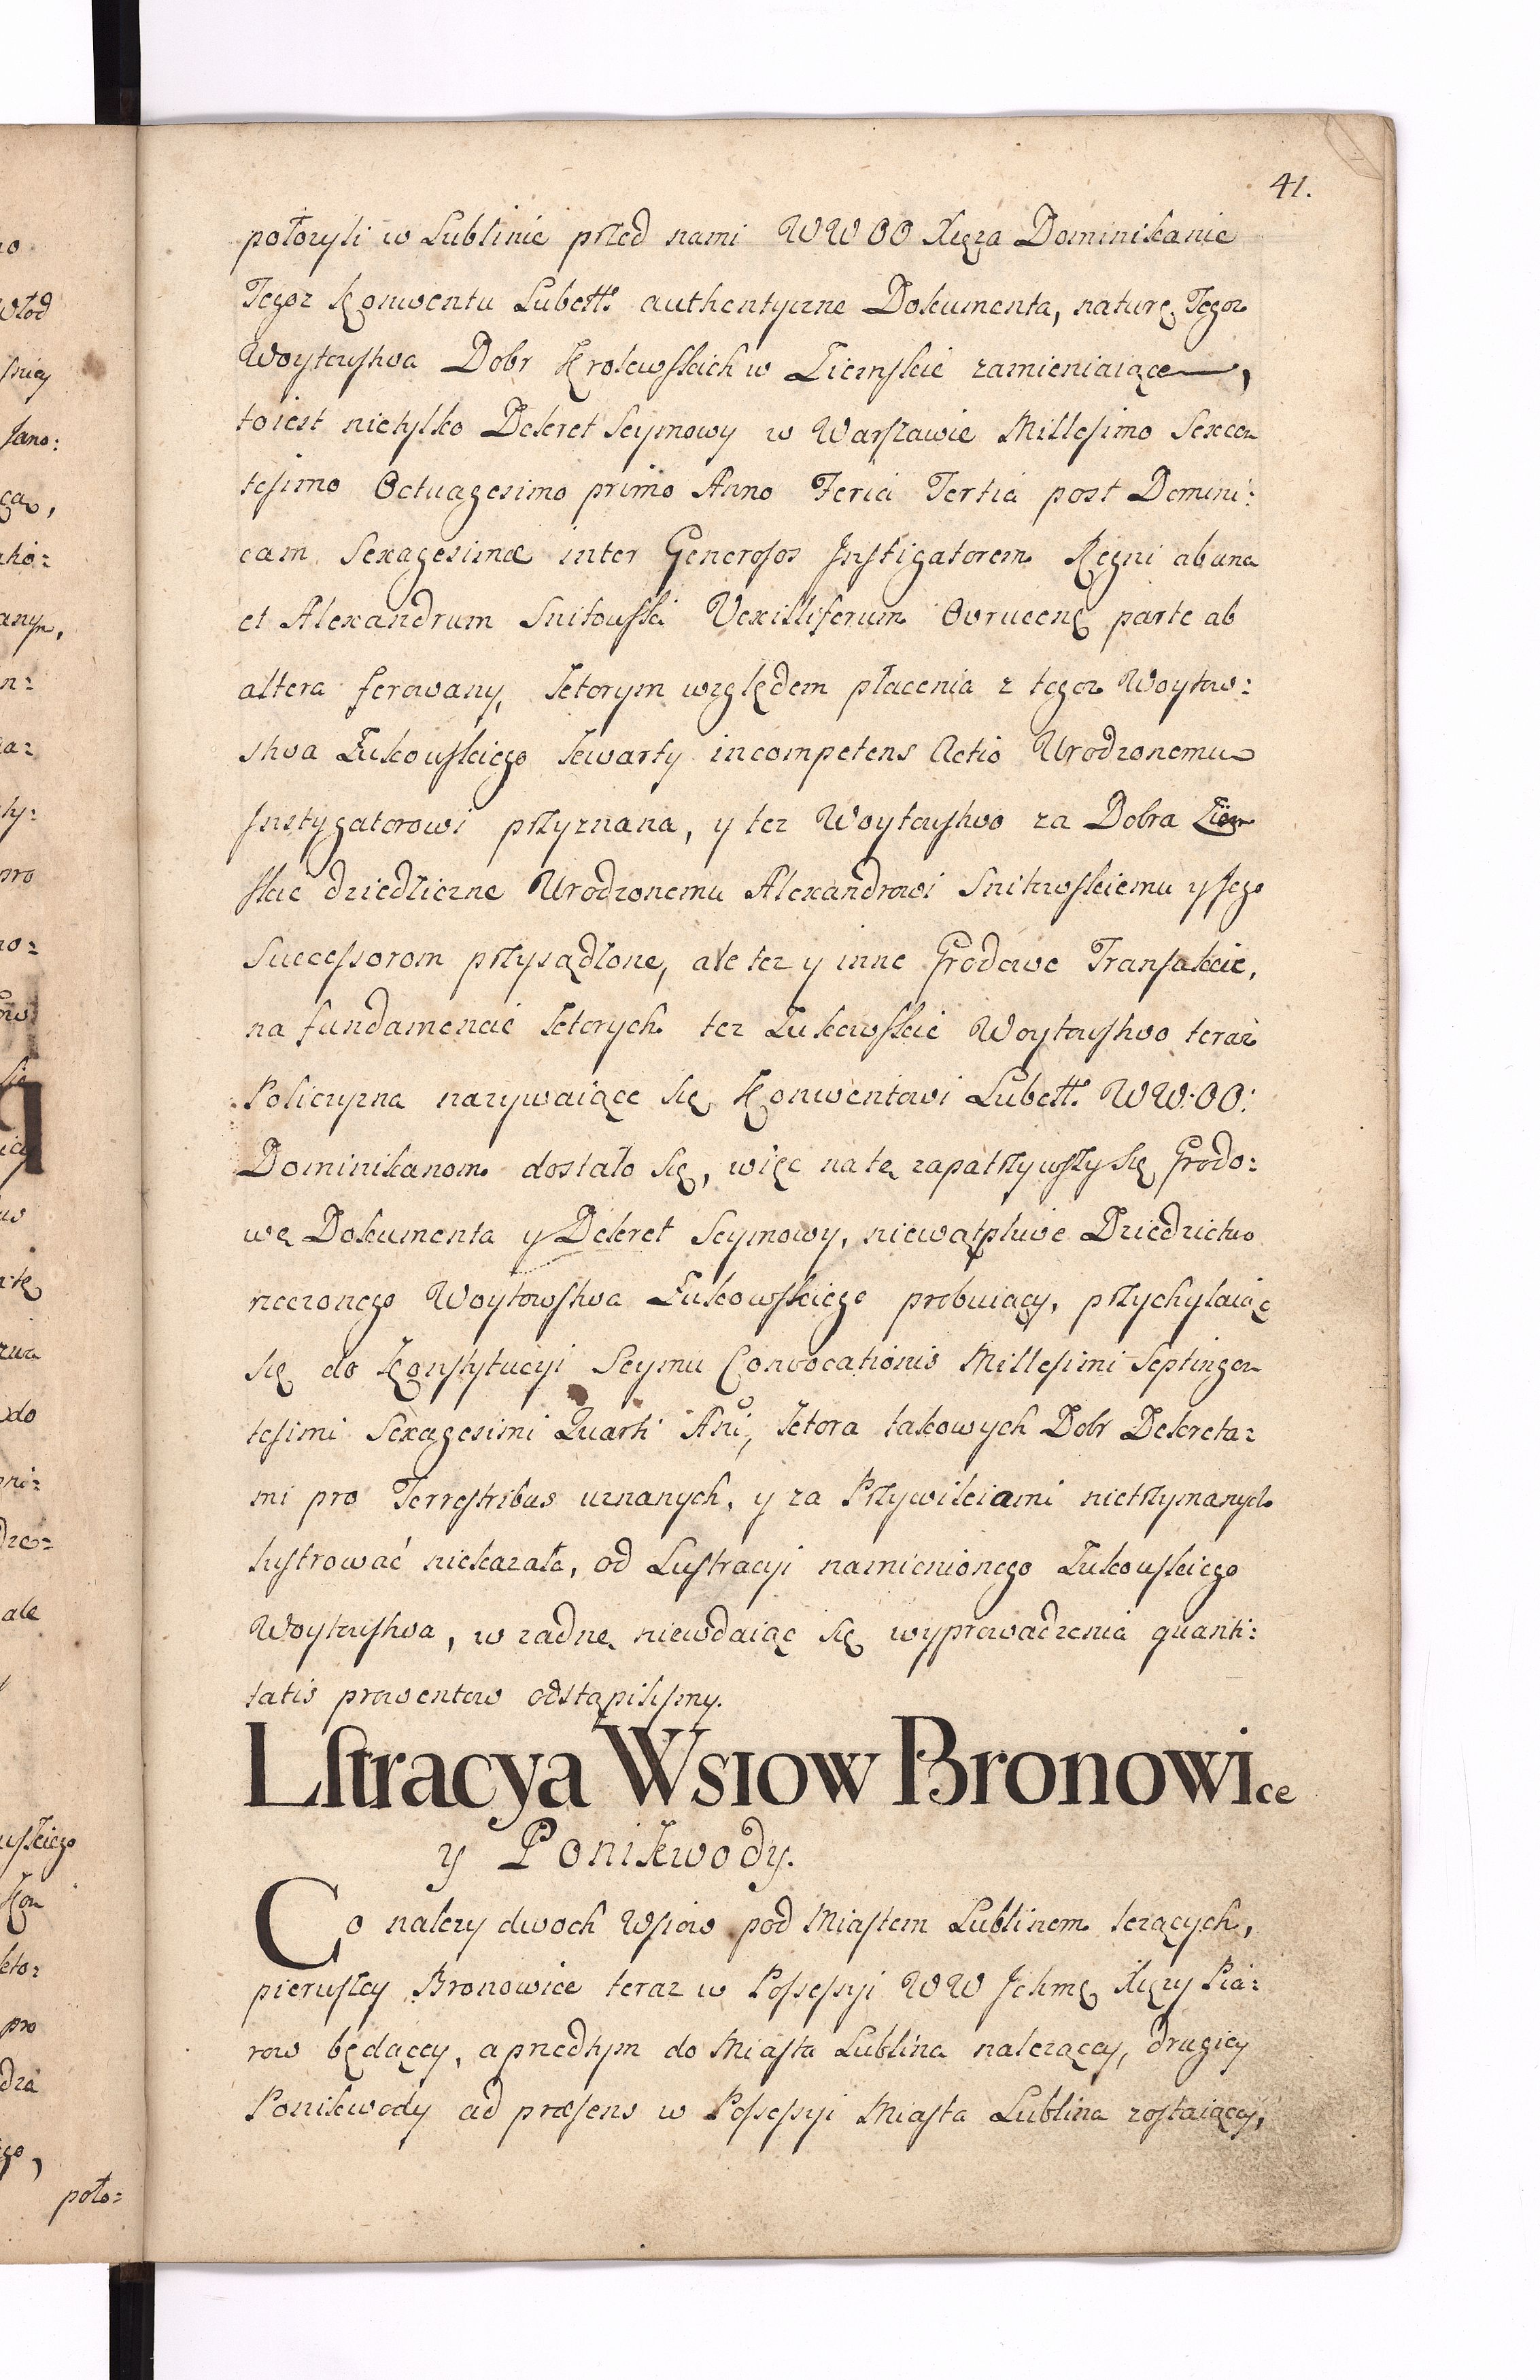 41.
połozyli w Lublinie przed nami WW OO Xięza Dominikanie
Tegoz Konwentu Lubell: authentyczne Dokumenta, naturę Tegoz
Woytowstwa Dobr Krolewskich w Ziemskie zamieniaiące,
toiest nietylko Dekret Seymowy w Warszawie Millesimo Sexcen
tesimo Octuagesimo primo Anno Feria Tertia post Domini:
cam Sexagesimæ inter Generosos Instigatorem Regni ab una
et Alexandrum Snitowski Vexilliferum Ovrucenę parte ab
altera ferowany, ktorym względem płacenia z tegoz Woytow:
stwa Łukowskiego kwarty incompetens Actio Urodzonemu
Instygatorowi przyznana, y tez Woytowstwo za Dobra Ziem
skie dziedziczne Urodzonemu Alexandrowi Snitowskiemu y Jego
Successorom przysądzone, ale tez y inne Grodowe Transakcie,
na fundamencie ktorych tez Łukowskie Woytowstwo teraz
Policyzna nazywaiące się Konwentowi Lubell: WW: OO:
Dominikanom dostało się, więc na te zapatrzywszy się Grodo:
we Dokumenta y Dekret Seymowy, niewątpliwe Dziedzictwo
rzeczonego Woytowstwa Łukowskiego probuiący, przychylaiąc
się do Konstytucyi Seymu Convocationis Millesimi Septingen
tesimi Sexagesimi Quarti Ani, ktora takowych Dobr Dekreta:
mi pro Terrestribus uznanych, y za Przywileiami nietrzymanych
lustrować niekazała, od Lustracyi namienionego Łukowskiego
Woytowstwa, w zadne niewdaiąc się wyprowadzenia quanti:
tatis prowentow odstąpilismy.
Lstracya Wsiow Bronowice
y Ponikwody.
Co nalezy dwoch Wsiow pod Miastem Lublinem lezących,
pierwszey Bronowice teraz w Possessyi WW Jchmę Xięzy Pia:
row będącey, a przedtym do Miasta Lublina nalezącey, drugiey
Ponikwody ad præsens w Possessyi Miasta Lublina zostaiącey,
poło: